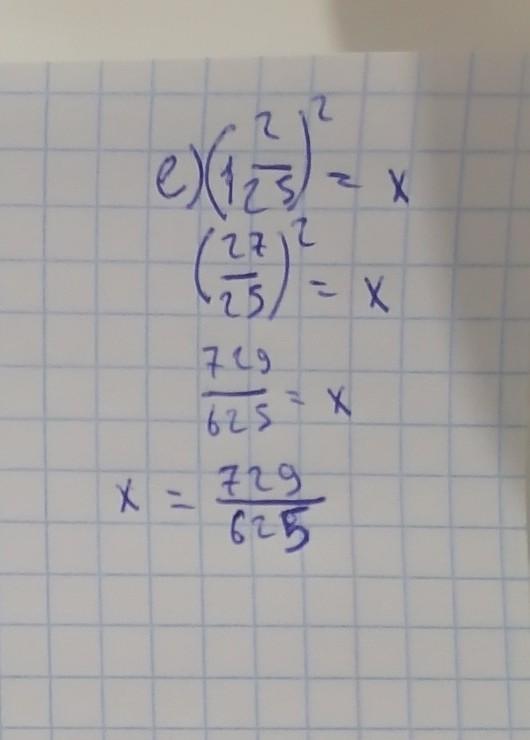 e) (1 2/25)² = x
(27/25)² = x
729/625 = x
x = 729/625